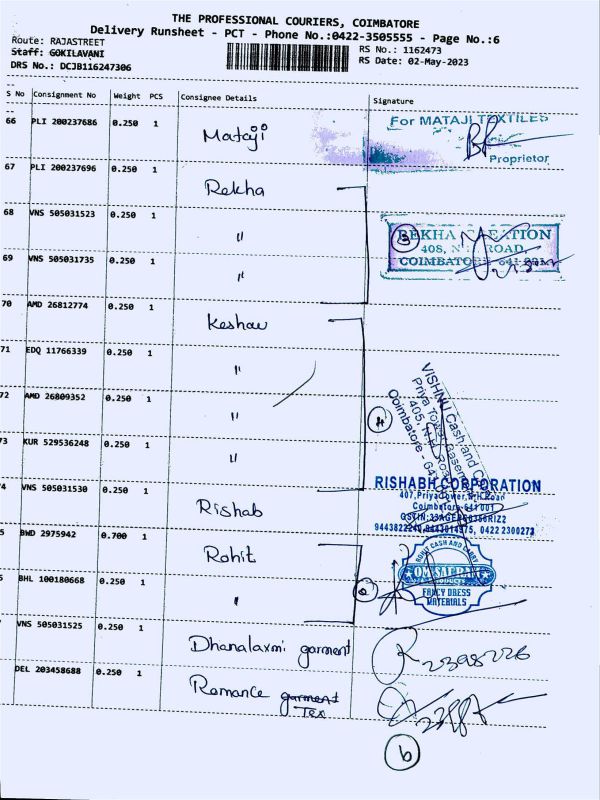 THE PROFESSIONAL COURIERS, COIMBATORE
Delivery Runsheet - PCT - Phone No.:0422-3505555 - Page No.:6
Route: RAJASTREET
Staff: GOKILAVANI
DRS No.: DCJB116247306
RS No.: 1162473
RS Date: 02-May-2023
S No Consignment No Weight PCS Consignee Details Signature
66 PLI 200237686 0.250 1 Mataji
For MATAJI TEXTILES
Proprietor
67 PLI 200237696 0.250 1 Rekha
68 VNS 505031523 0.250 1 "
REKHA CREATION
408, N.H. ROAD,
COIMBATORE - 641 001
69 VNS 505031735 0.250 1 "
70 AMD 26812774 0.250 1 Keshav
71 EDQ 11766339 0.250 1 "
72 AMD 26809352 0.250 1 "
VISHNU Cash and
Priya Tower
405, N.H. Road
Coimbatore - 641
73 KUR 529536248 0.250 1 "
4 VNS 505031530 0.250 1 Rishab
RISHABH CORPORATION
407, Priya Tower, N.H. Road
Coimbatore-641 001
0422 2300273
5 BWD 2975942 0.700 1 Rohit
ROHIT CASH AND CARRY
PRODUCTS
FANCY DRESS
MATERIALS
BHL 100180668 0.250 1 "
VNS 505031525 0.250 1 Dhanalaxmi garment
DEL 203458688 0.250 1 Romance garment
Tex
6